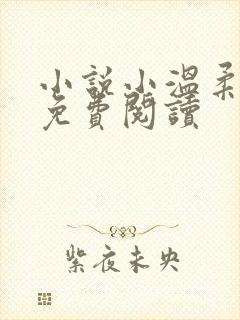 小說小溫柔
免費閱讀
紫夜未央